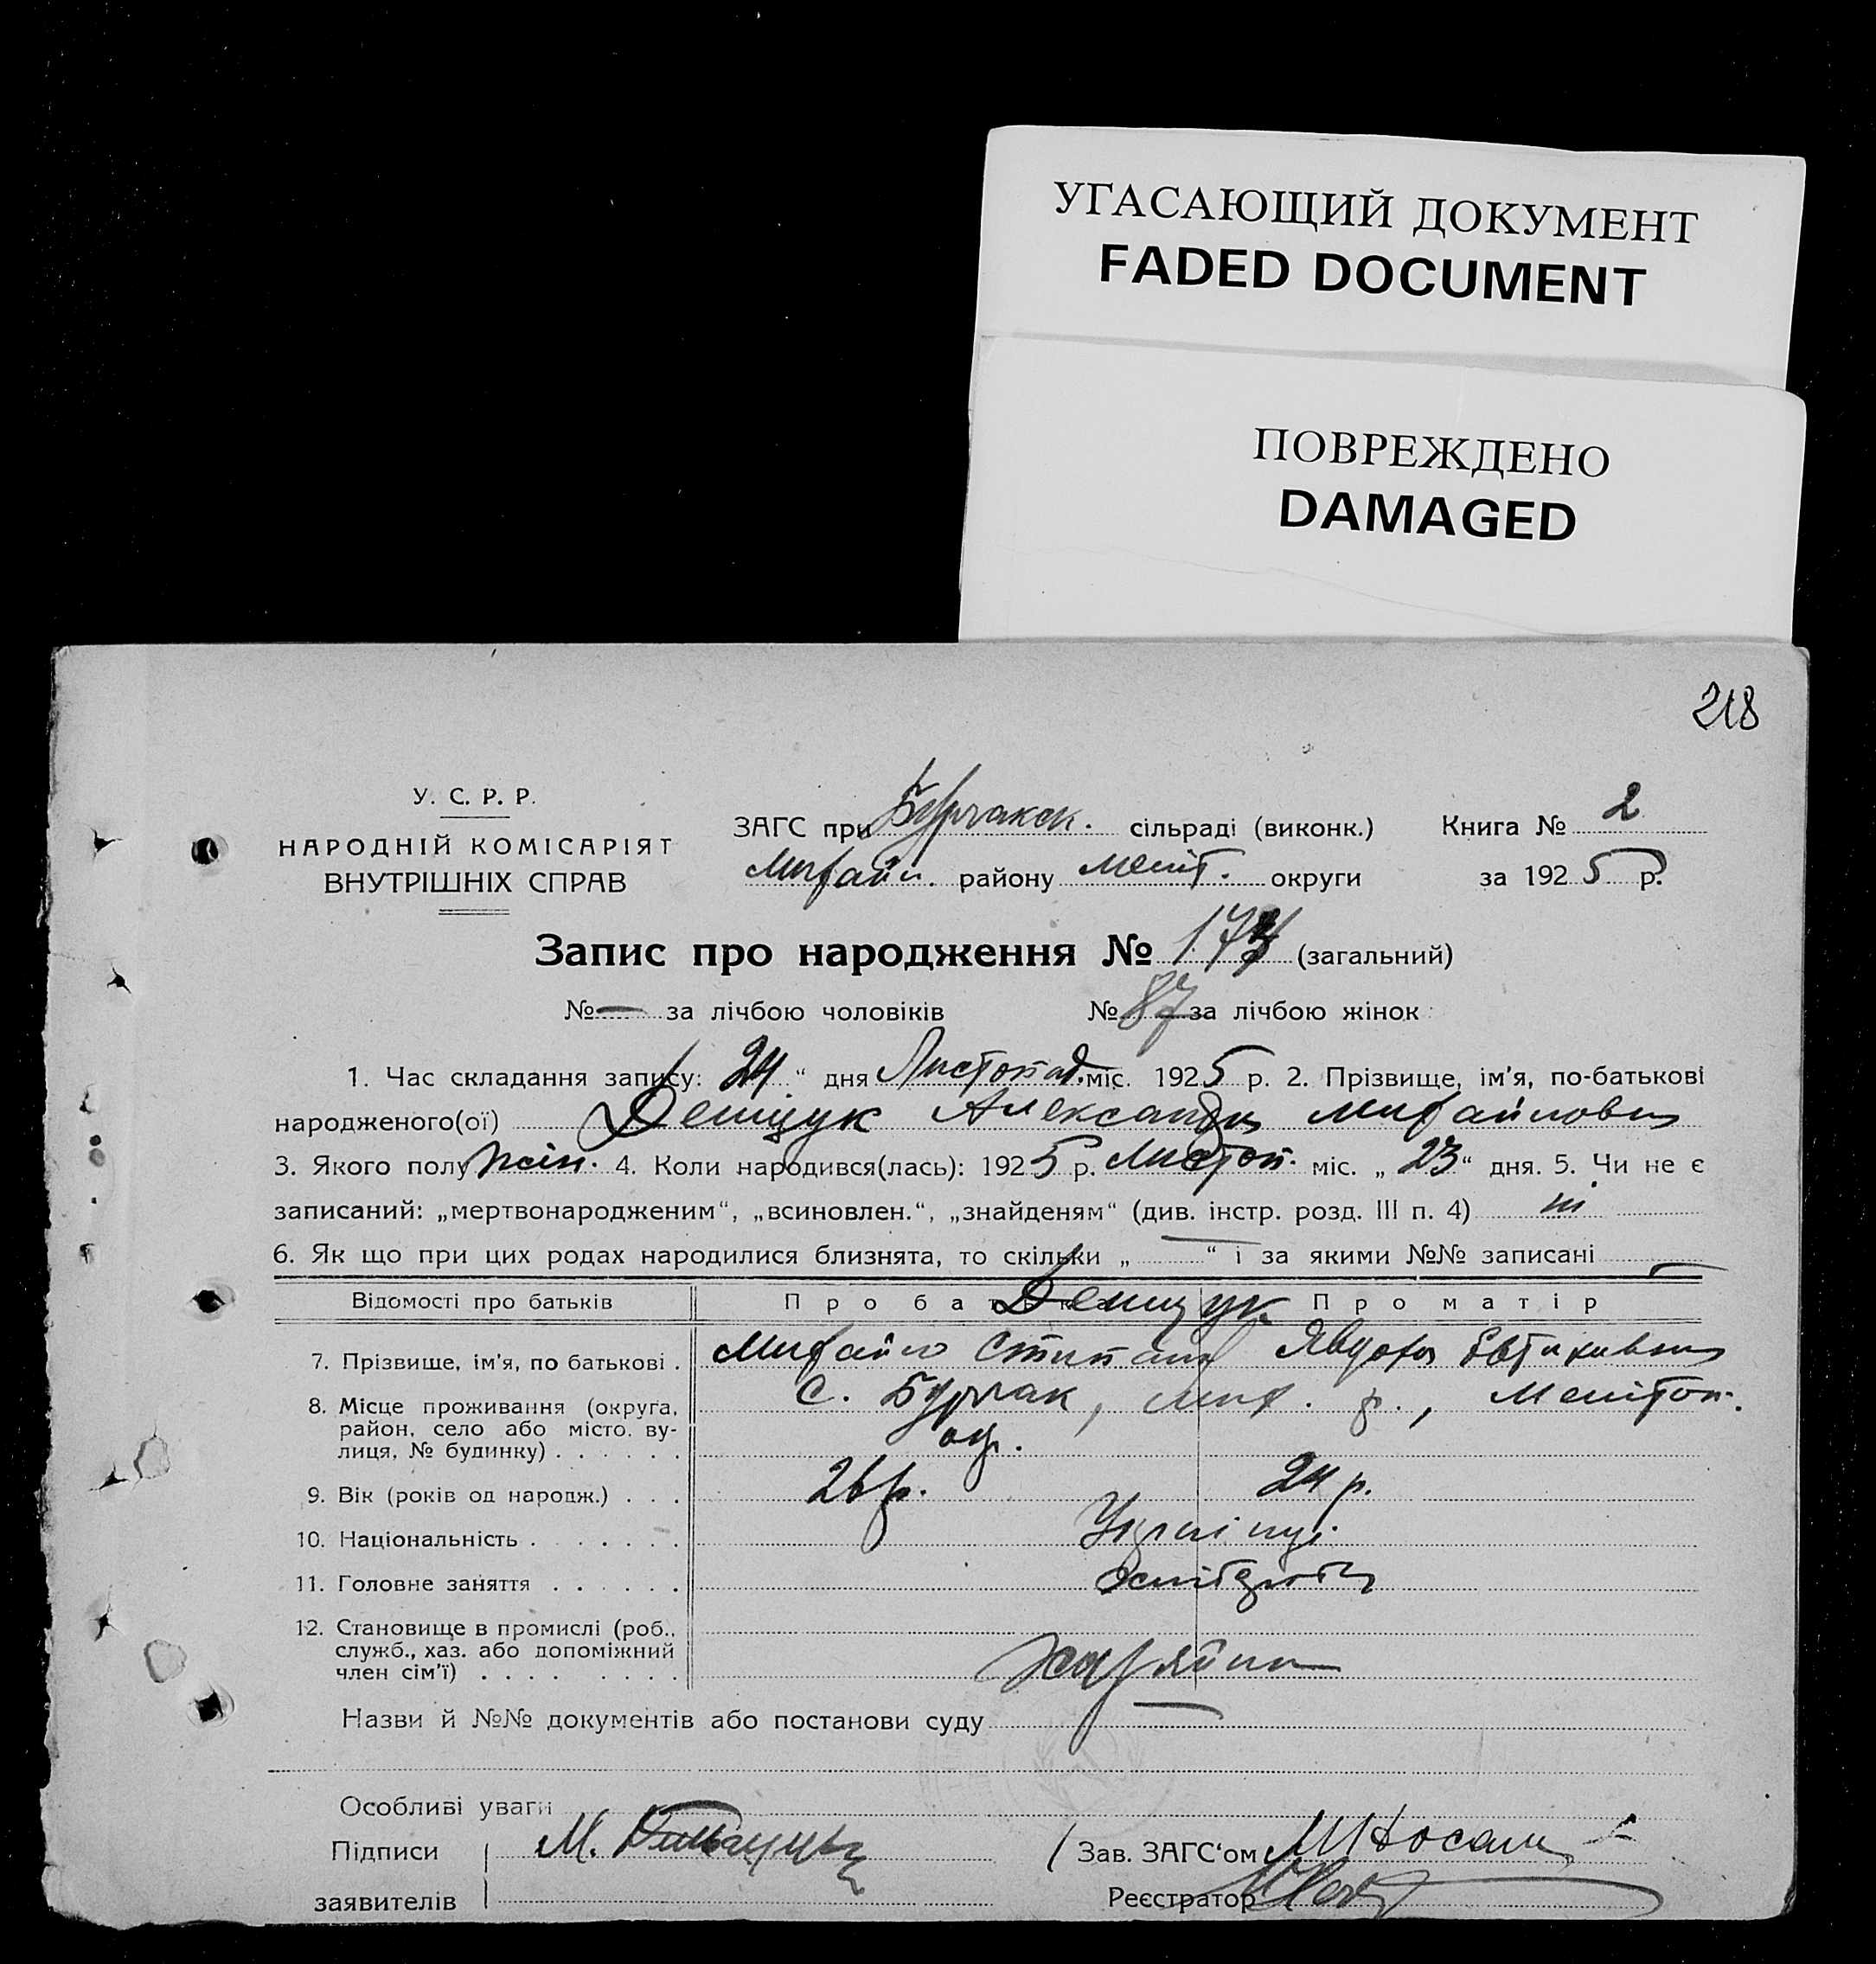 УГАСАЮЩИЙ ДОКУМЕНТ
FADED DOCUMENT
ПОВРЕЖДЕНО
DAMAGED
218
У. С. Р. Р.
НАРОДНІЙ КОМІСАРІЯТ
ВНУТРІШНІХ СПРАВ
ЗАГС при Бурчакск. сільраді (виконк.)
Михайл. району Меліт. округи
Книга № 2
за 1925 р.
Запис про народження № 173 (загальний)
№ — за лічбою чоловіків № 87 за лічбою жінок
1. Час складання запису: 24 " дня Листопад. міс. 1925 р. 2. Прізвище, ім'я, по-батькові
народженого(ої) Демщук Александра Михайловна
3. Якого полу жін. 4. Коли народився(лась): 1925 р. Листоп. міс. „ 23 " дня. 5. Чи не є
записаний: „мертвонародженим", „всиновлен.", „знайденям" (див. інстр. розд. III п. 4) ні
6. Як що при цих родах народилися близнята, то скільки „ — " і за якими №№ записані —
Відомості про батьків Про батька Про матір
Демщук
7. Прізвище, ім'я, по батькові . Михайло Степан Явдоха Евтихивна
8. Місце проживання (округа, район, село або місто, вулиця, № будинку) . . . . . . с. Бурчак, Мих. р., Мелітоп.
ок.
9. Вік (років од народж.) . . . 26 р. 24 р.
10. Національність . . . . . . . Українці
11. Головне заняття . . . . . .
12. Становище в промислі (роб.,
служб., хаз. або допоміжний
член сім'ї) . . . . . . . . . Хазяїни
Назви й №№ документів або постанови суду —
Особливі уваги
Підписи М.
заявителів
Зав. ЗАГС'ом
Реєстратор